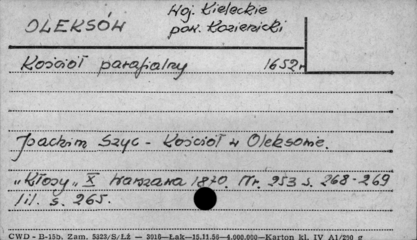 OLEKSÓW
Woj. Kieleckie
pow. Kozienicki
Kościół parafialny 1652r
Joachim Szyc - Kościół w Oleksowie.
„Kłosy" X Warszawa 1870. Nr. 253 s. 268-269
il. s. 265.
CWD - B-15b. Zam. 5323/S/ŁŻ — 3010—Łak—15.11.56—4.000.000—Karton kl. IV A1/210 g.